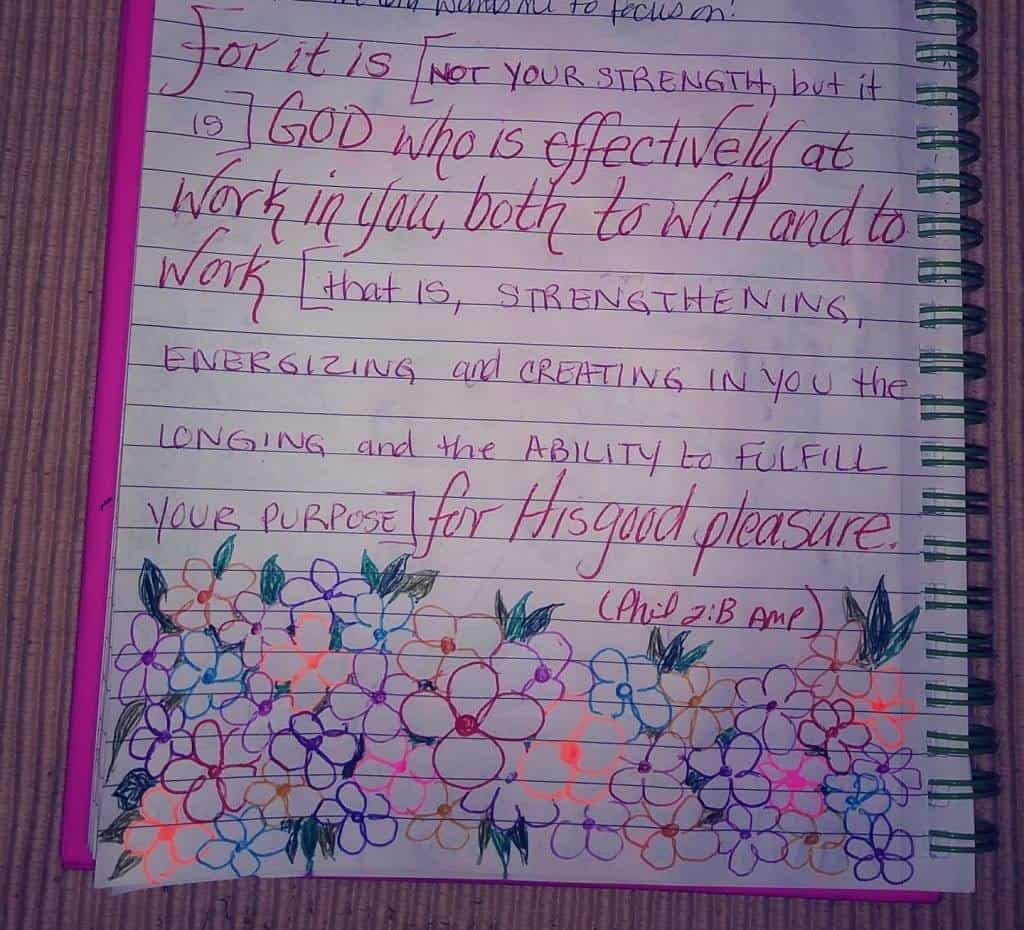 to focus on!
For it is [NOT YOUR STRENGTH, but it
is] GOD who is effectively at
work in you, both to will and to
work [that is, STRENGTHENING,
ENERGIZING and CREATING IN YOU the
LONGING and the ABILITY to FULFILL
YOUR PURPOSE] for His good pleasure.
(Phil 2:13 AMP)